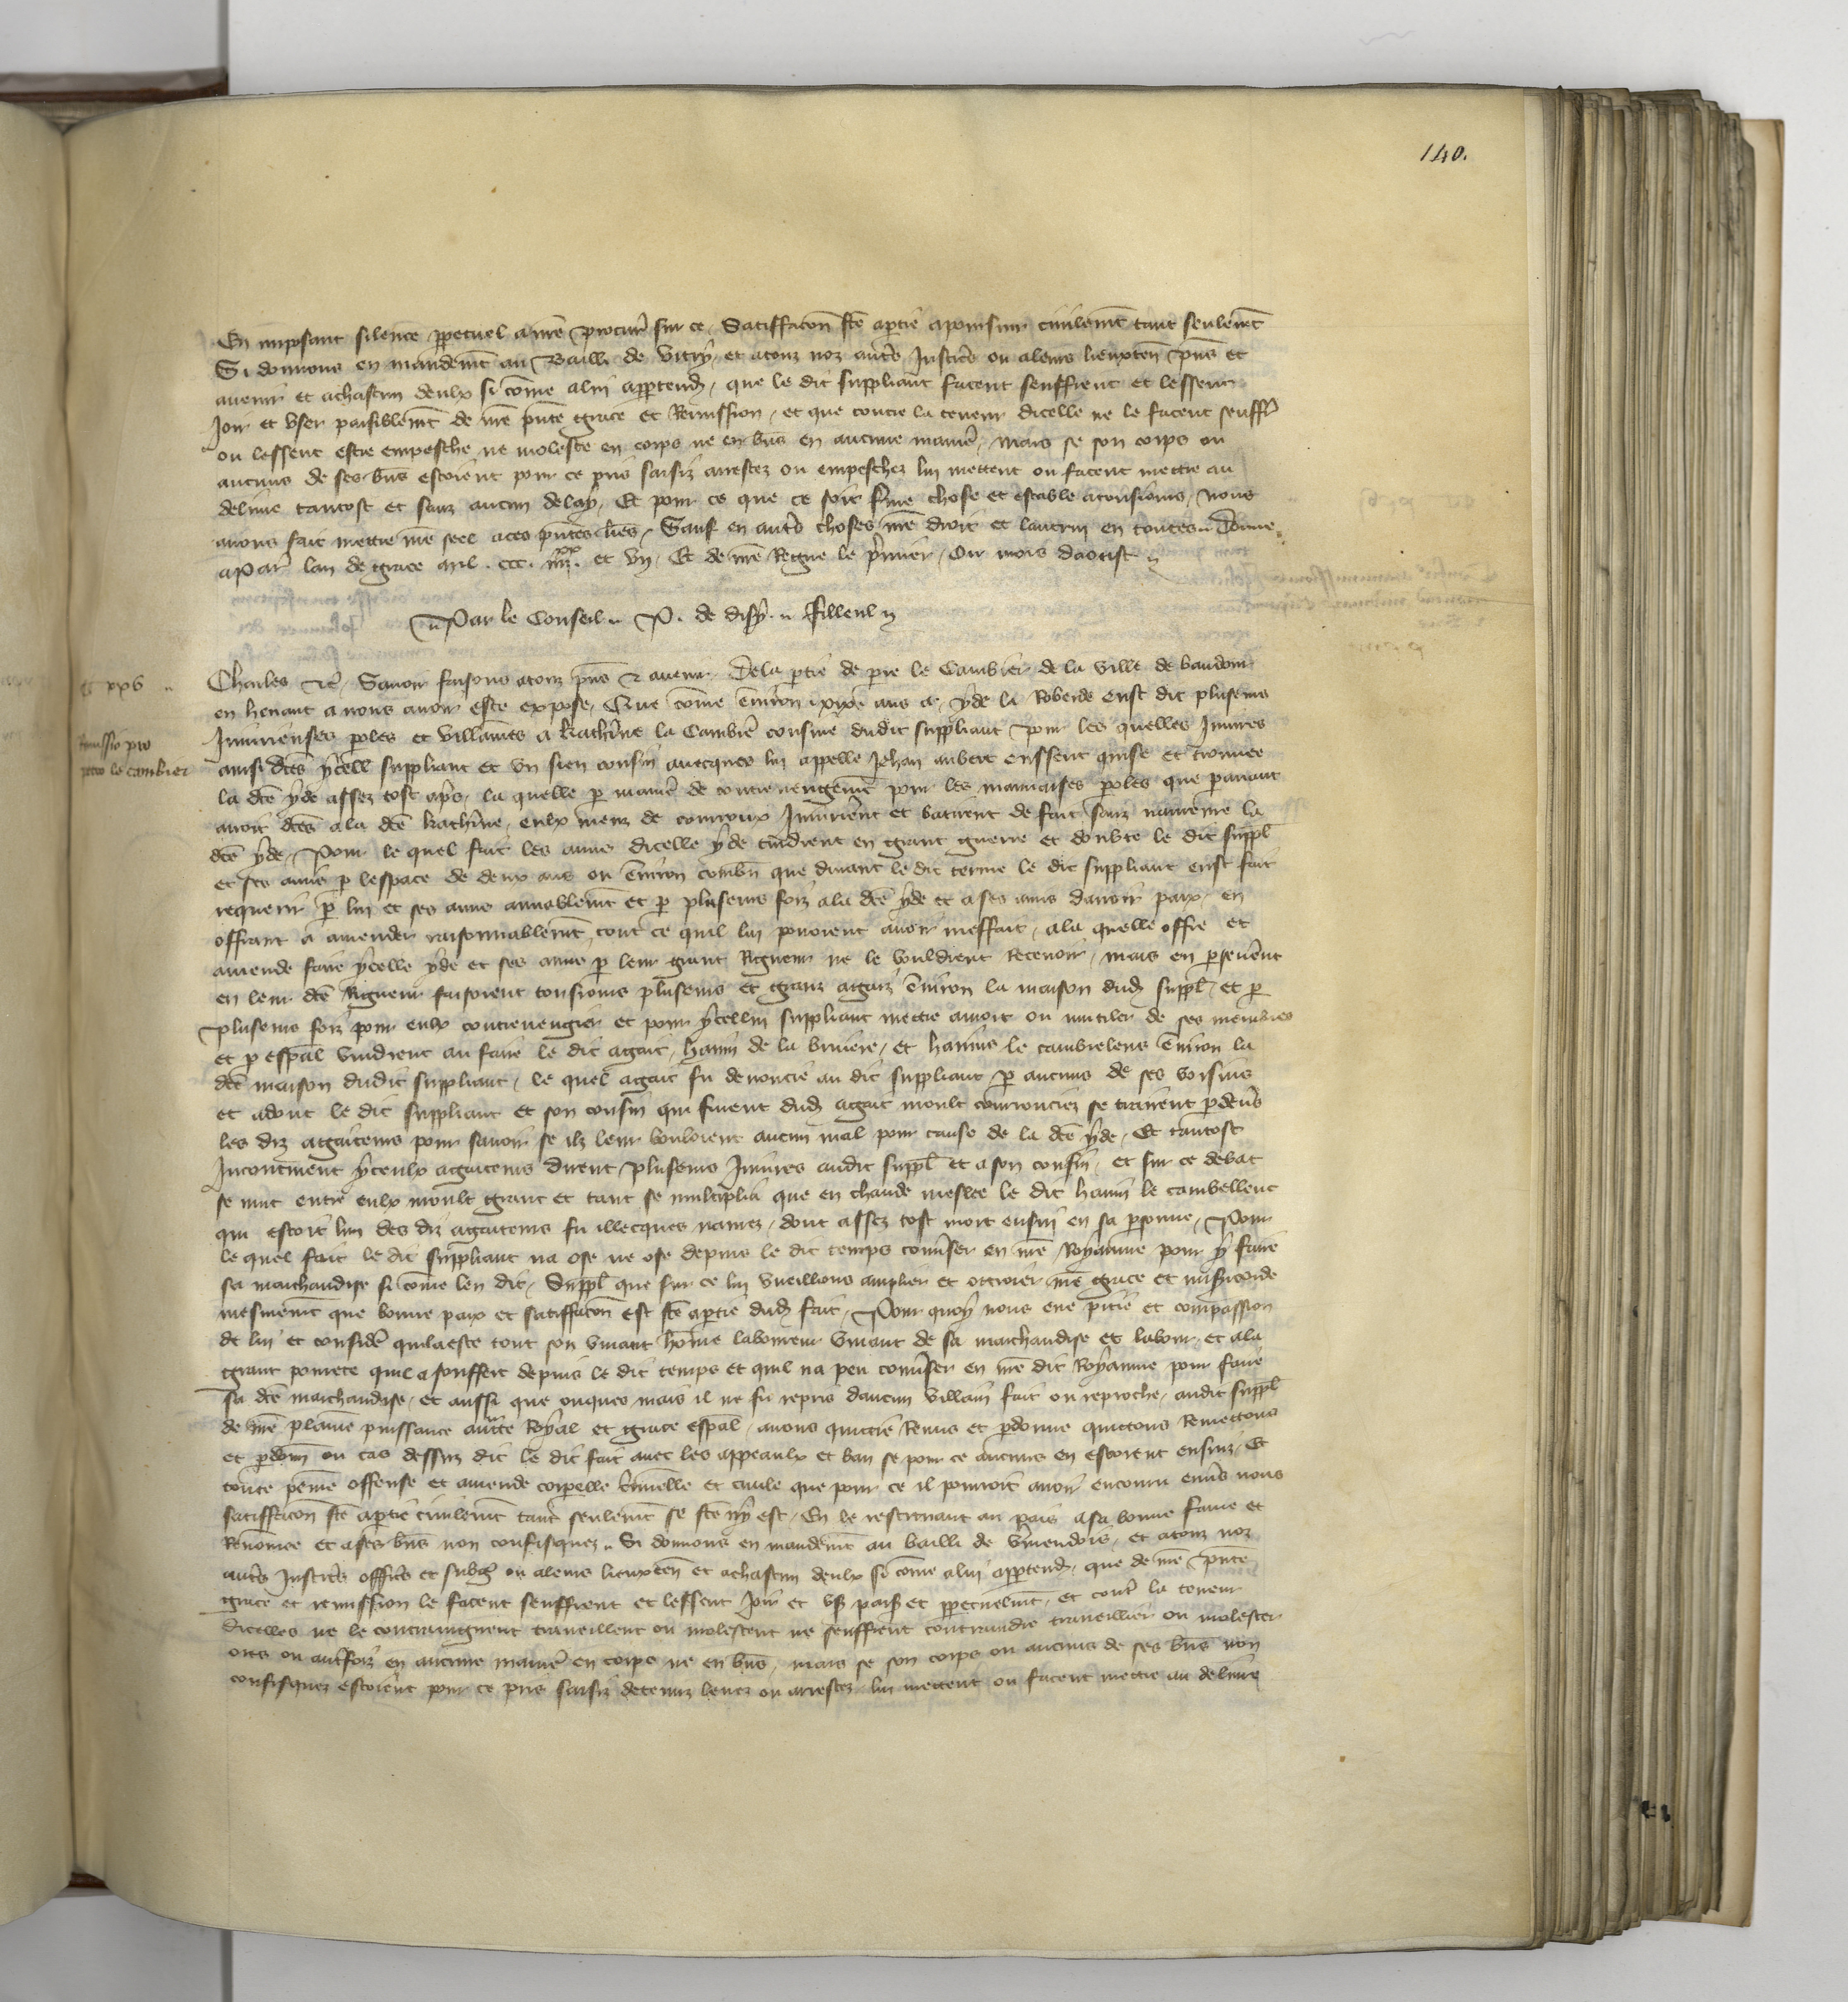 140.
En imposant silence ppetuel a nre procur sur ce. Satiffacon fce aptie a poursuir civilemt tant seulemt
Si donnons en mandemt au Bailli de Vitry et a touz noz autres Justic̃s ou a leurs lieuxten̄ pn̄s et
avenir et a chascun deulx si cōme a lui appartendr̄ que le dit suppliant facent seuffrent et lessent
Joir et user paisiblemt de nre pn̄te grace et Remission et que contre la teneur dicelle ne le facent seuffr̄
ou lessent estre empesche ne moleste en corps ne en biēs en aucune manie᷑ mais se son corps ou
aucuns de ses biēs estoient pour ce pris saisiz arrestez ou empeschez lui mettent ou facent mettre au
delivre tantost et sanz aucun delay Et pour ce que ce soit ferme chose et estable a tousiours nous
avons fait mettre nre seel a ces pn̄tes lr̄es Sauf en autres choses nre droit et lautrui en toutes Donne
a Par̄ lan de grace mil ccc iiii xx et un Et de nre Regne le p̄mier Ou mois daoust
Par le Conseil P. de disy filleul
C xxv
Remissio pro
petro le cambier
Charles &c Savoir faisons a touz pn̄s & avenir De la ptie de pre le Cambier de la ville de baudour
en henaut a nous avoir este expose Que cōme environ ans a yde la Roberde eust dit plusieurs
Injurieuses poles et villaines a Katherine la Cambiere cousine dudit suppliant Pour les quelles Injures
ainsi dc̄es ycell suppliant et un sien cousin avecques lui appelle Jehan aubert eussent quise et trouvee
la dcē yde assez tost aps̄ la quelle p manie᷑ de contrevengemt pour les mauvaises poles que pavant
avoit dc̄es a la dcē Katherine eulx meuz de courroux Injurierent et batirent de fait sanz navreure la
dcē yde Pour le quel fait les amis dicelle yde tindrent en grant guerre et doubte le dit suppl̄
et ses amis p lespace de deux ans ou environ combn̄ que durant le dit terme le dit suppliant eust fait
requerir p lui et ses amis amiablemt et p plusieurs foiz a la dcē yde et a ses amis davoir paix en
offrant a amender raisonnablemt tout ce quil lui povoient avoir meffait a la quelle offre et
amende faire ycelle yde et ses amis p leur grant Rigueur ne le vouldrent Recevoir mais en pseverent
en leur dcē Rigueur faisoient tousiours plusieurs et granz agaiz environ la maison dud̄ suppl̄ et p
Plusieurs foiz pour eulx contrevengier et pour ycellui suppliant mettre a mort ou mutiler de ses membres
et p espal̄ vindrent au faire le dit agait hanin de la bruiere et hanins le cambrelens environ la
dcē maison dudit suppliant le quel agait fu denoncie au dit suppliant p aucuns de ses voisins
et adont le dit suppliant et son cousin qui furent dud̄ agait moult courrouciez se tirerent p devers
les diz agaiteurs pour savoir se ilz leur vouloient aucun mal pour cause de la dcē yde Et tantost
Incontinent yceulx agaiteurs dirent plusieurs Injures audit suppl̄ et a son cousin et sur ce debat
se mut entre eulx moult grant et tant se multiplia que en chaude meslee le dit hanin le cambellent
qui estoit lun des diz agaiteurs fu illecques navrez dont assez tost mort ensui en sa psonne Pour
le quel fait le dit suppliant na ose ne ose depuis le dit temps converser en nre Royaume pour y faire
sa marchandise si cōme len dit Suppl̄ que sur ce lui vueillions amplier et ottroier nre grace et misericorde
mesmemt que bonne paix et satiffacon est fce a ptie dud̄ fait Pour quoy nous eue pitie et compassion
de lui et consider̄ quil a este tout son vivant hōme laboureur vivant de sa marchandise et labour et a la
grant povrete quil a souffert depuis le dit temps et quil na peu converser en nre dit Royaume pour faire
sa dcē marchandise et aussi que onques mais il ne fu repris daucun villain fait ou reproche audit suppl̄
de nre plaine puissance autte Royal et grace espal̄ avons quittie Remis et pdonne quittons Remettons
et pdonn̄ ou cas dessuz dit le dit fait avec les appeaulx et ban se pour ce aucuns en estoient ensuiz Et
toute peine offense et amende corpelle c᷑minelle et civile que pour ce il pourroit avoir encouru envers nous
satiffacon fce a ptie civilemt tant seulemt se fce ny est En le restituant au pais a sa bonne fame et
Renōmee et a ses biēs non confisquez Si donnons en mandemt au bailli de Vermendois et a touz noz
autres Justic̃s offic̃s et subgez ou a leurs lieuxten̄ et a chascun deulx si cōme a lui appartendr̄ que de nre pn̄te
grace et remission le facent seuffrent et lessent Joir et us̄ paisi et ppetuelmt et contr̄ la teneur
dicelles ne le contraignent traveillent ou molestent ne seuffrent contraindre traveillier ou molester
ores ou autrefoiz en aucune manie᷑ en corps ne en biēs mais se son corps ou aucuns de ses biēs non
confisquez estoient pour ce pris saisiz detenuz levez ou arrestez lui mettent ou facent mettre au delivre